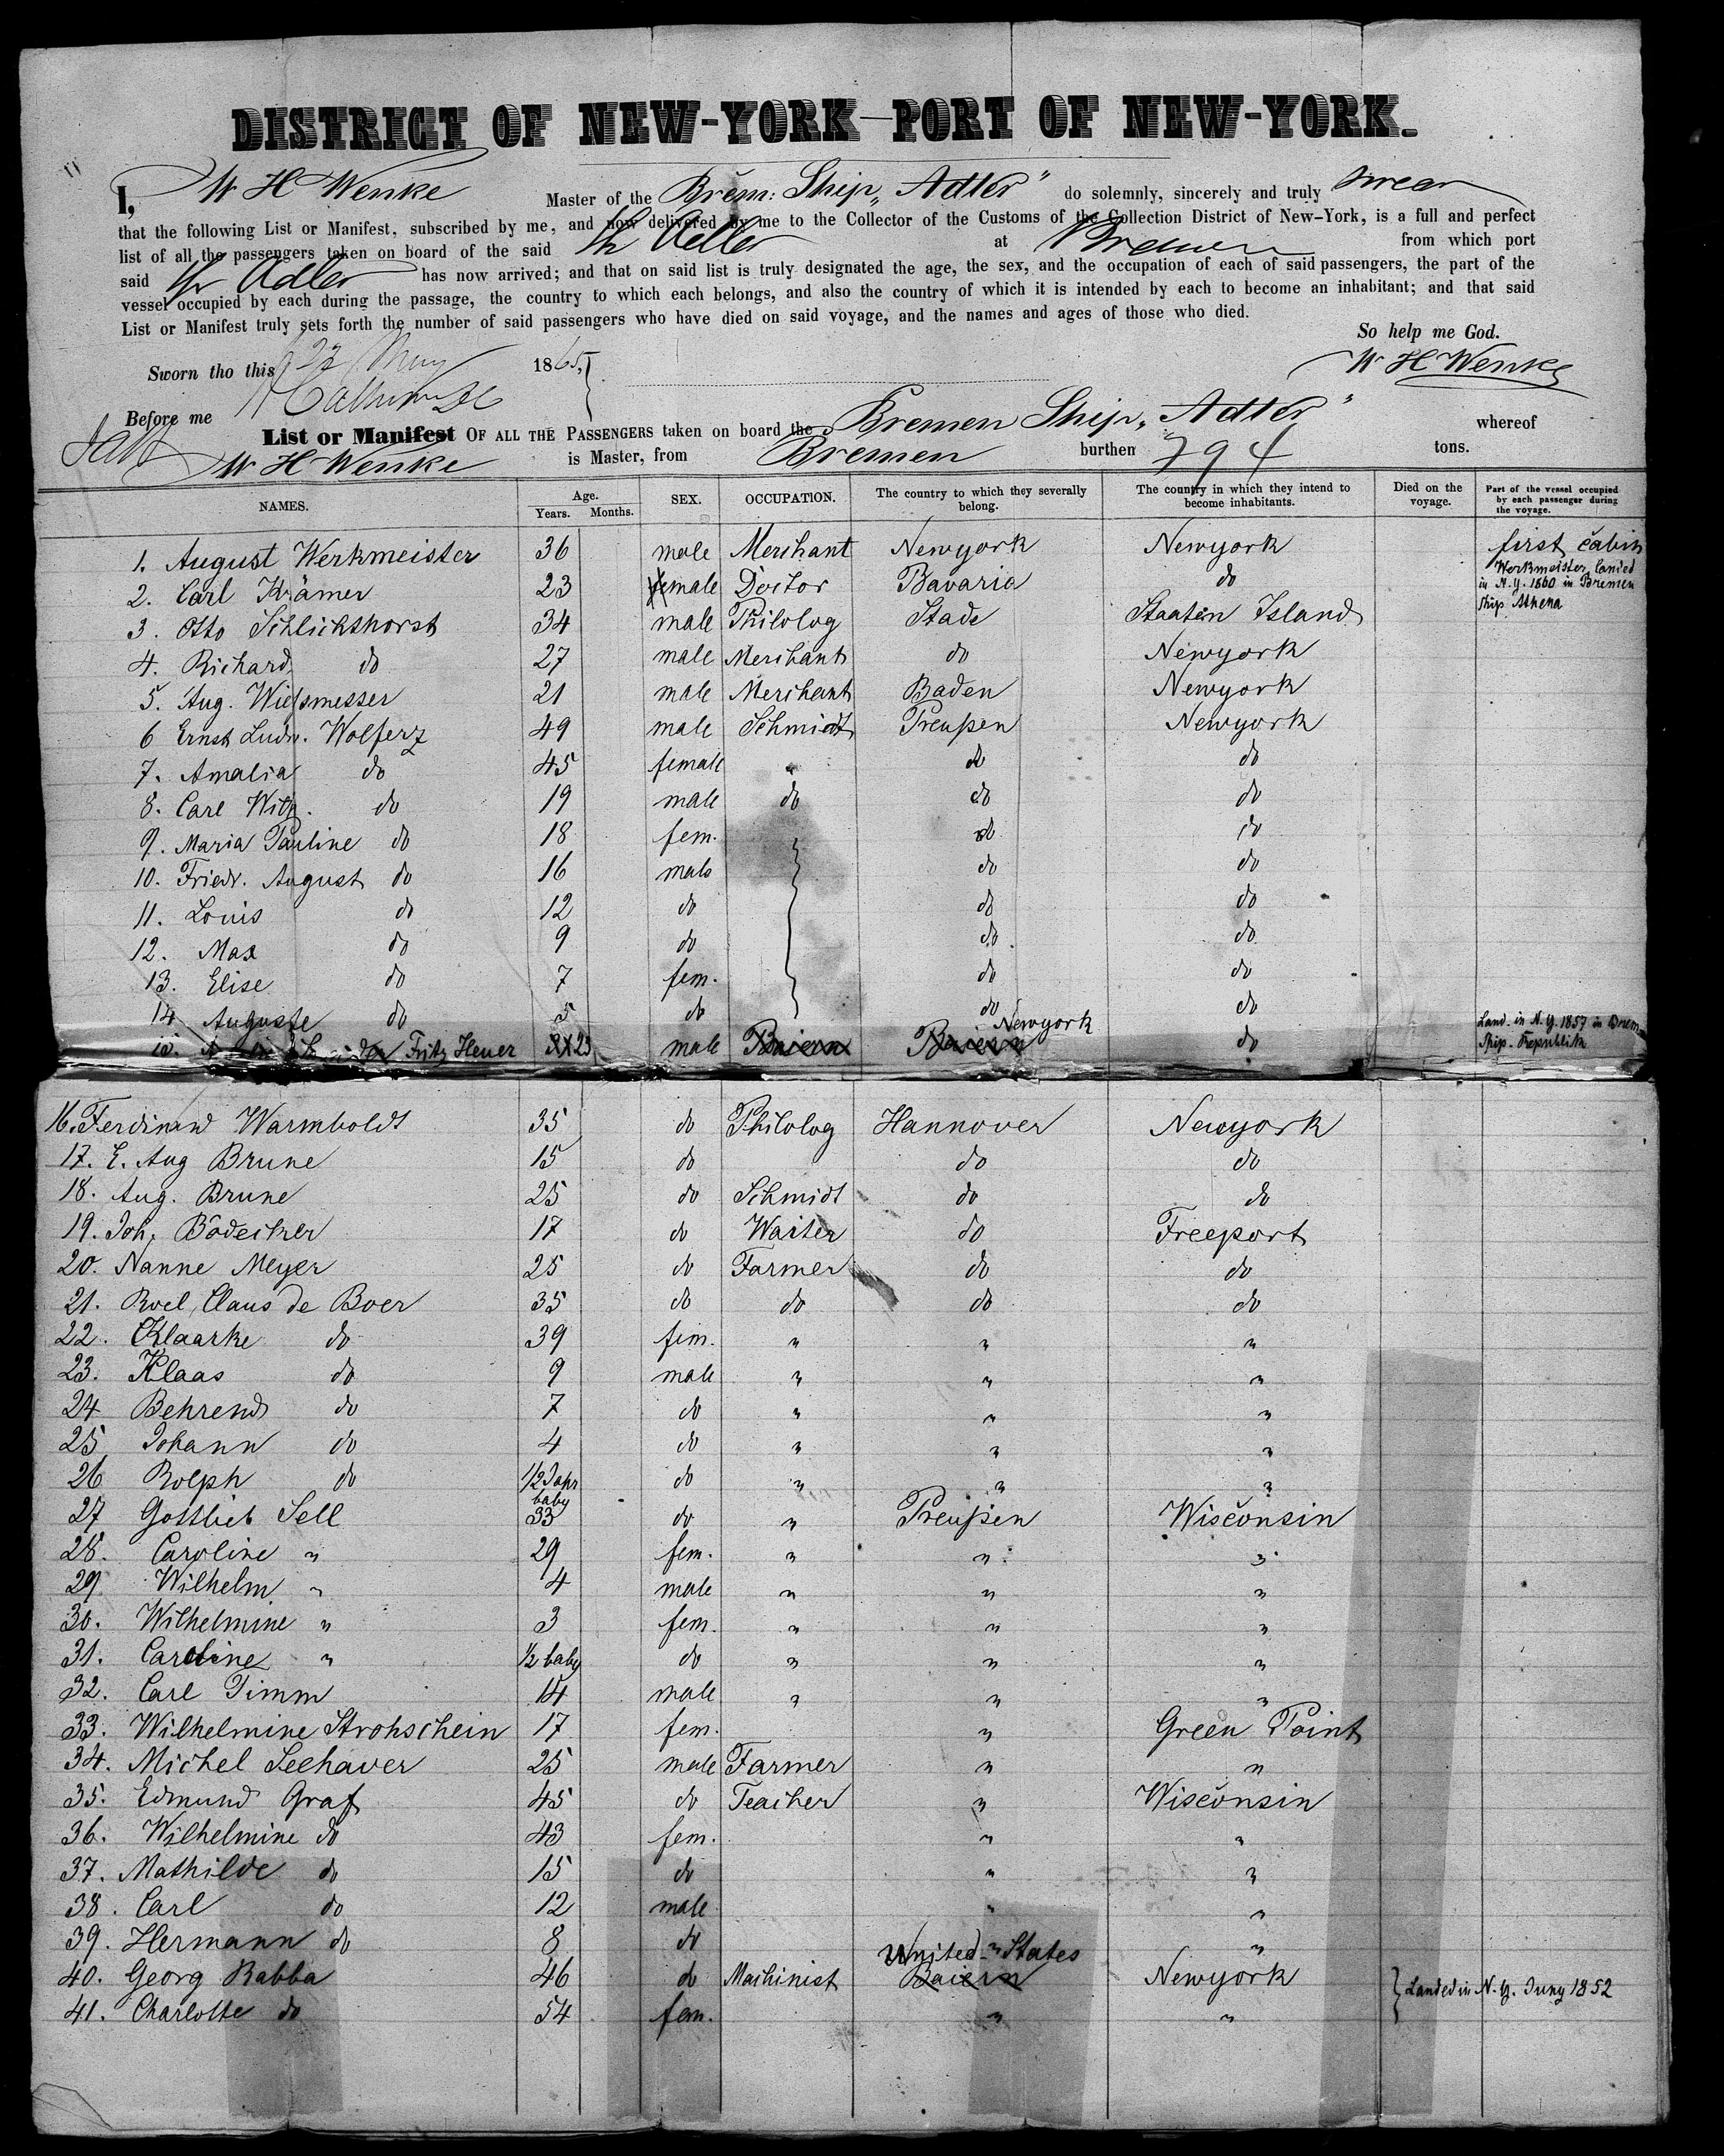 DISTRICT OF NEW-YORK—PORT OF NEW-YORK.
I, W H Wenke Master of the Brem: Ship „Adler" do solemnly, sincerely and truly swear
that the following List or Manifest, subscribed by me, and now delivered by me to the Collector of the Customs of the Collection District of New-York, is a full and perfect
list of all the passengers taken on board of the said Adler at Bremen from which port
said Adler has now arrived; and that on said list is truly designated the age, the sex, and the occupation of each of said passengers, the part of the
vessel occupied by each during the passage, the country to which each belongs, and also the country of which it is intended by each to become an inhabitant; and that said
List or Manifest truly sets forth the number of said passengers who have died on said voyage, and the names and ages of those who died.
So help me God.
Sworn tho this 22 May 1865, W H Wenke
Before me
List or Manifest OF ALL THE PASSENGERS taken on board the Bremen Ship „Adler" whereof
W H Wenke is Master, from Bremen burthen 794 tons.
NAMES. Age. Years. Months. SEX. OCCUPATION. The country to which they severally belong. The country in which they intend to become inhabitants. Died on the voyage. Part of the vessel occupied by each passenger during the voyage.
1. August Werkmeister 36 male Merchant Newyork Newyork first cabin
Werkmeister landed in N.Y. 1860 in Bremen Ship Athena
2. Carl Krämer 23 female Doctor Bavaria do
3. Otto Schlichthorst 34 male Philolog Stade Staaten Island
4. Richard do 27 male Merchant do Newyork
5. Aug. Wiesmesser 21 male Merchant Baden Newyork
6 Ernst Ludw. Wolferz 49 male Schmidt Preußen Newyork
7. Amalia do 45 female do do
8. Carl Wilh. do 19 male do do do
9. Maria Pauline do 18 fem. do do
10. Friedr. August do 16 male do do
11. Louis do 12 do do do
12. Max do 9 do do do
13. Elise do 7 fem. do do
14 Auguste do 5 do do do
15. Fritz Heuer 23 male Baiern Baiern Newyork do Land. in N.Y. 1857 in Brem. Ship. Republik
16. Ferdinand Warmboldt 35 do Philolog Hannover Newyork
17. E. Aug Brune 15 do do do
18. Aug. Brune 25 do Schmidt do do
19. Joh. Bödecker 17 do Waiter do Freeport
20. Nanne Meyer 25 do Farmer do do
21. Roel, Claus de Boer 35 do do do do
22. Klaarke do 39 fem. " " "
23. Klaas do 9 male " " "
24 Behrend do 7 do " " "
25 Johann do 4 do " " "
26 Rolph do 1/2 Jahr baby do " " "
27 Gottlieb Sell 33 do " Preußen Wisconsin
28. Caroline " 29 fem. " " "
29 Wilhelm " 4 male " " "
30. Wilhelmine " 3 fem. " " "
31. Caroline " 1/2 baby do " " "
32. Carl Timm 14 male " " "
33. Wilhelmine Strohschein 17 fem. " Green Point
34. Michel Seehaver 25 male Farmer " "
35. Edmund Graf 45 do Teacher " Wisconsin
36. Wilhelmine do 43 fem. " "
37. Mathilde do 15 do " "
38. Carl do 12 male " "
39. Hermann do 8 do " "
40. Georg Rabba 46 do Machinist Baiern United States Newyork Landed in N.Y. Juny 1852
41. Charlotte do 54 fem. " "